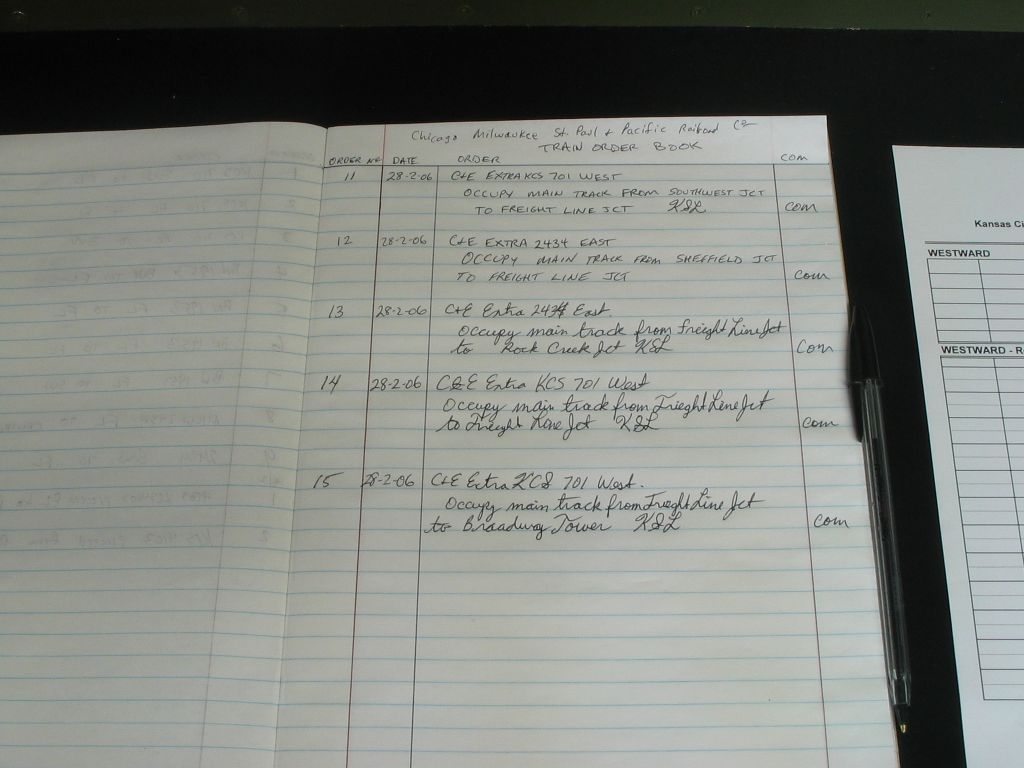 Chicago Milwaukee St. Paul + Pacific Railroad Co
TRAIN ORDER BOOK
ORDER NR DATE ORDER COM
11 28-2-06 C+E EXTRA KCS 701 WEST
OCCUPY MAIN TRACK FROM SOUTHWEST JCT
TO FREIGHT LINE JCT KSL com
12 28-2-06 C+E EXTRA 2434 EAST
OCCUPY MAIN TRACK FROM SHEFFIELD JCT
TO FREIGHT LINE JCT com
13 28-2-06 C+E Extra 2434 East
Occupy main track from Freight Line Jct
to Rock Creek Jct KSL Com
14 28-2-06 C&E Extra KCS 701 West
Occupy main track from Frieght Line Jct
to Frieght Line Jct KSL com
15 28-2-06 C+E Extra KCS 701 West.
Occupy main track from Frieght Line Jct
to Broadway Tower KSL com
Kansas Ci
WESTWARD
WESTWARD - R